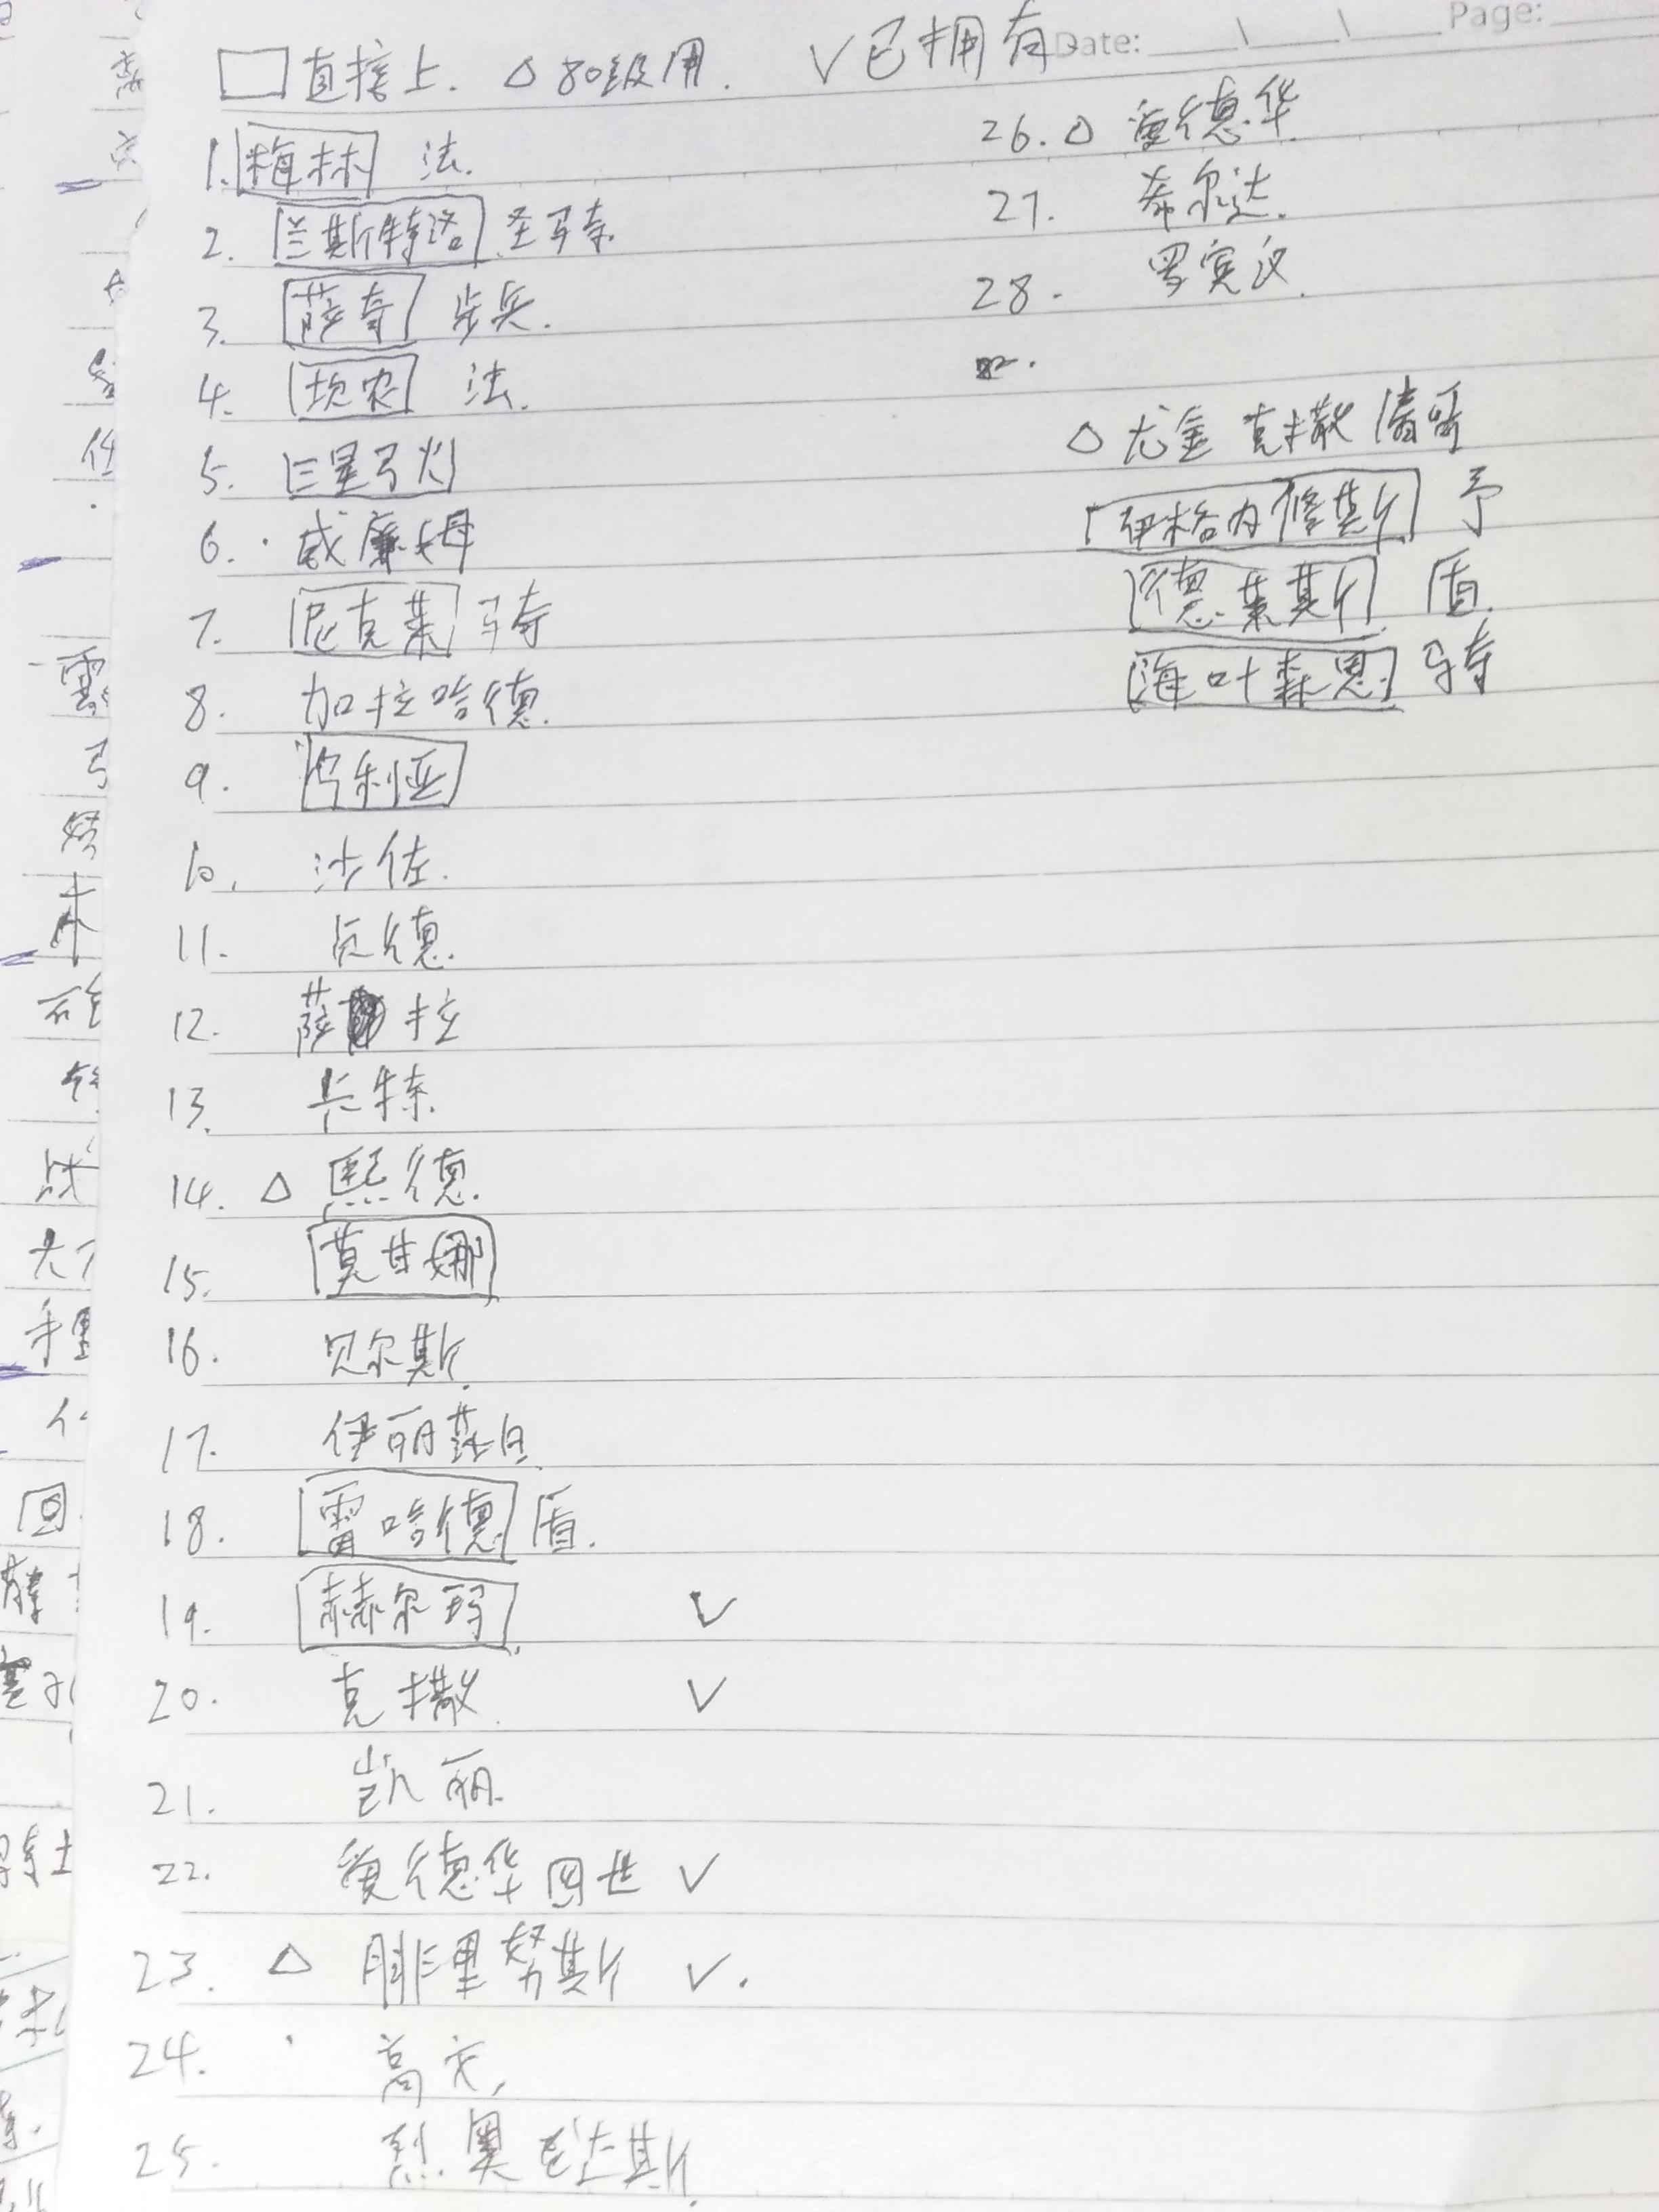 Page:
Date:
□直接上. △80级用. ✓已拥有
1. 梅林 法.
2. 兰斯特洛 圣骑.
3. 萨奇 步兵.
4. 坎农 法.
5. 三星弓灯
6. 威廉姆
7. 尼克莱 骑
8. 加拉哈德.
9. 乌利亚
10. 沙佐.
11. 贞德.
12. 萨拉
13. 长特.
14. △ 熙德.
15. 莫甘娜
16. 贝尔斯.
17. 伊丽莎白.
18. 雷哈德 盾.
19. 赫尔玛. ✓
20. 克撒. ✓
21. 凯丽.
22. 爱德华四世 ✓
23. △ 腓里努斯 ✓.
24. 高文,
25. 烈奥达斯.
26. △ 爱德华.
27. 希尔达.
28. 罗宾汉.
△尤金 克撒 清哥
伊格内修斯 弓
德莱斯 盾.
海叶森恩. 骑